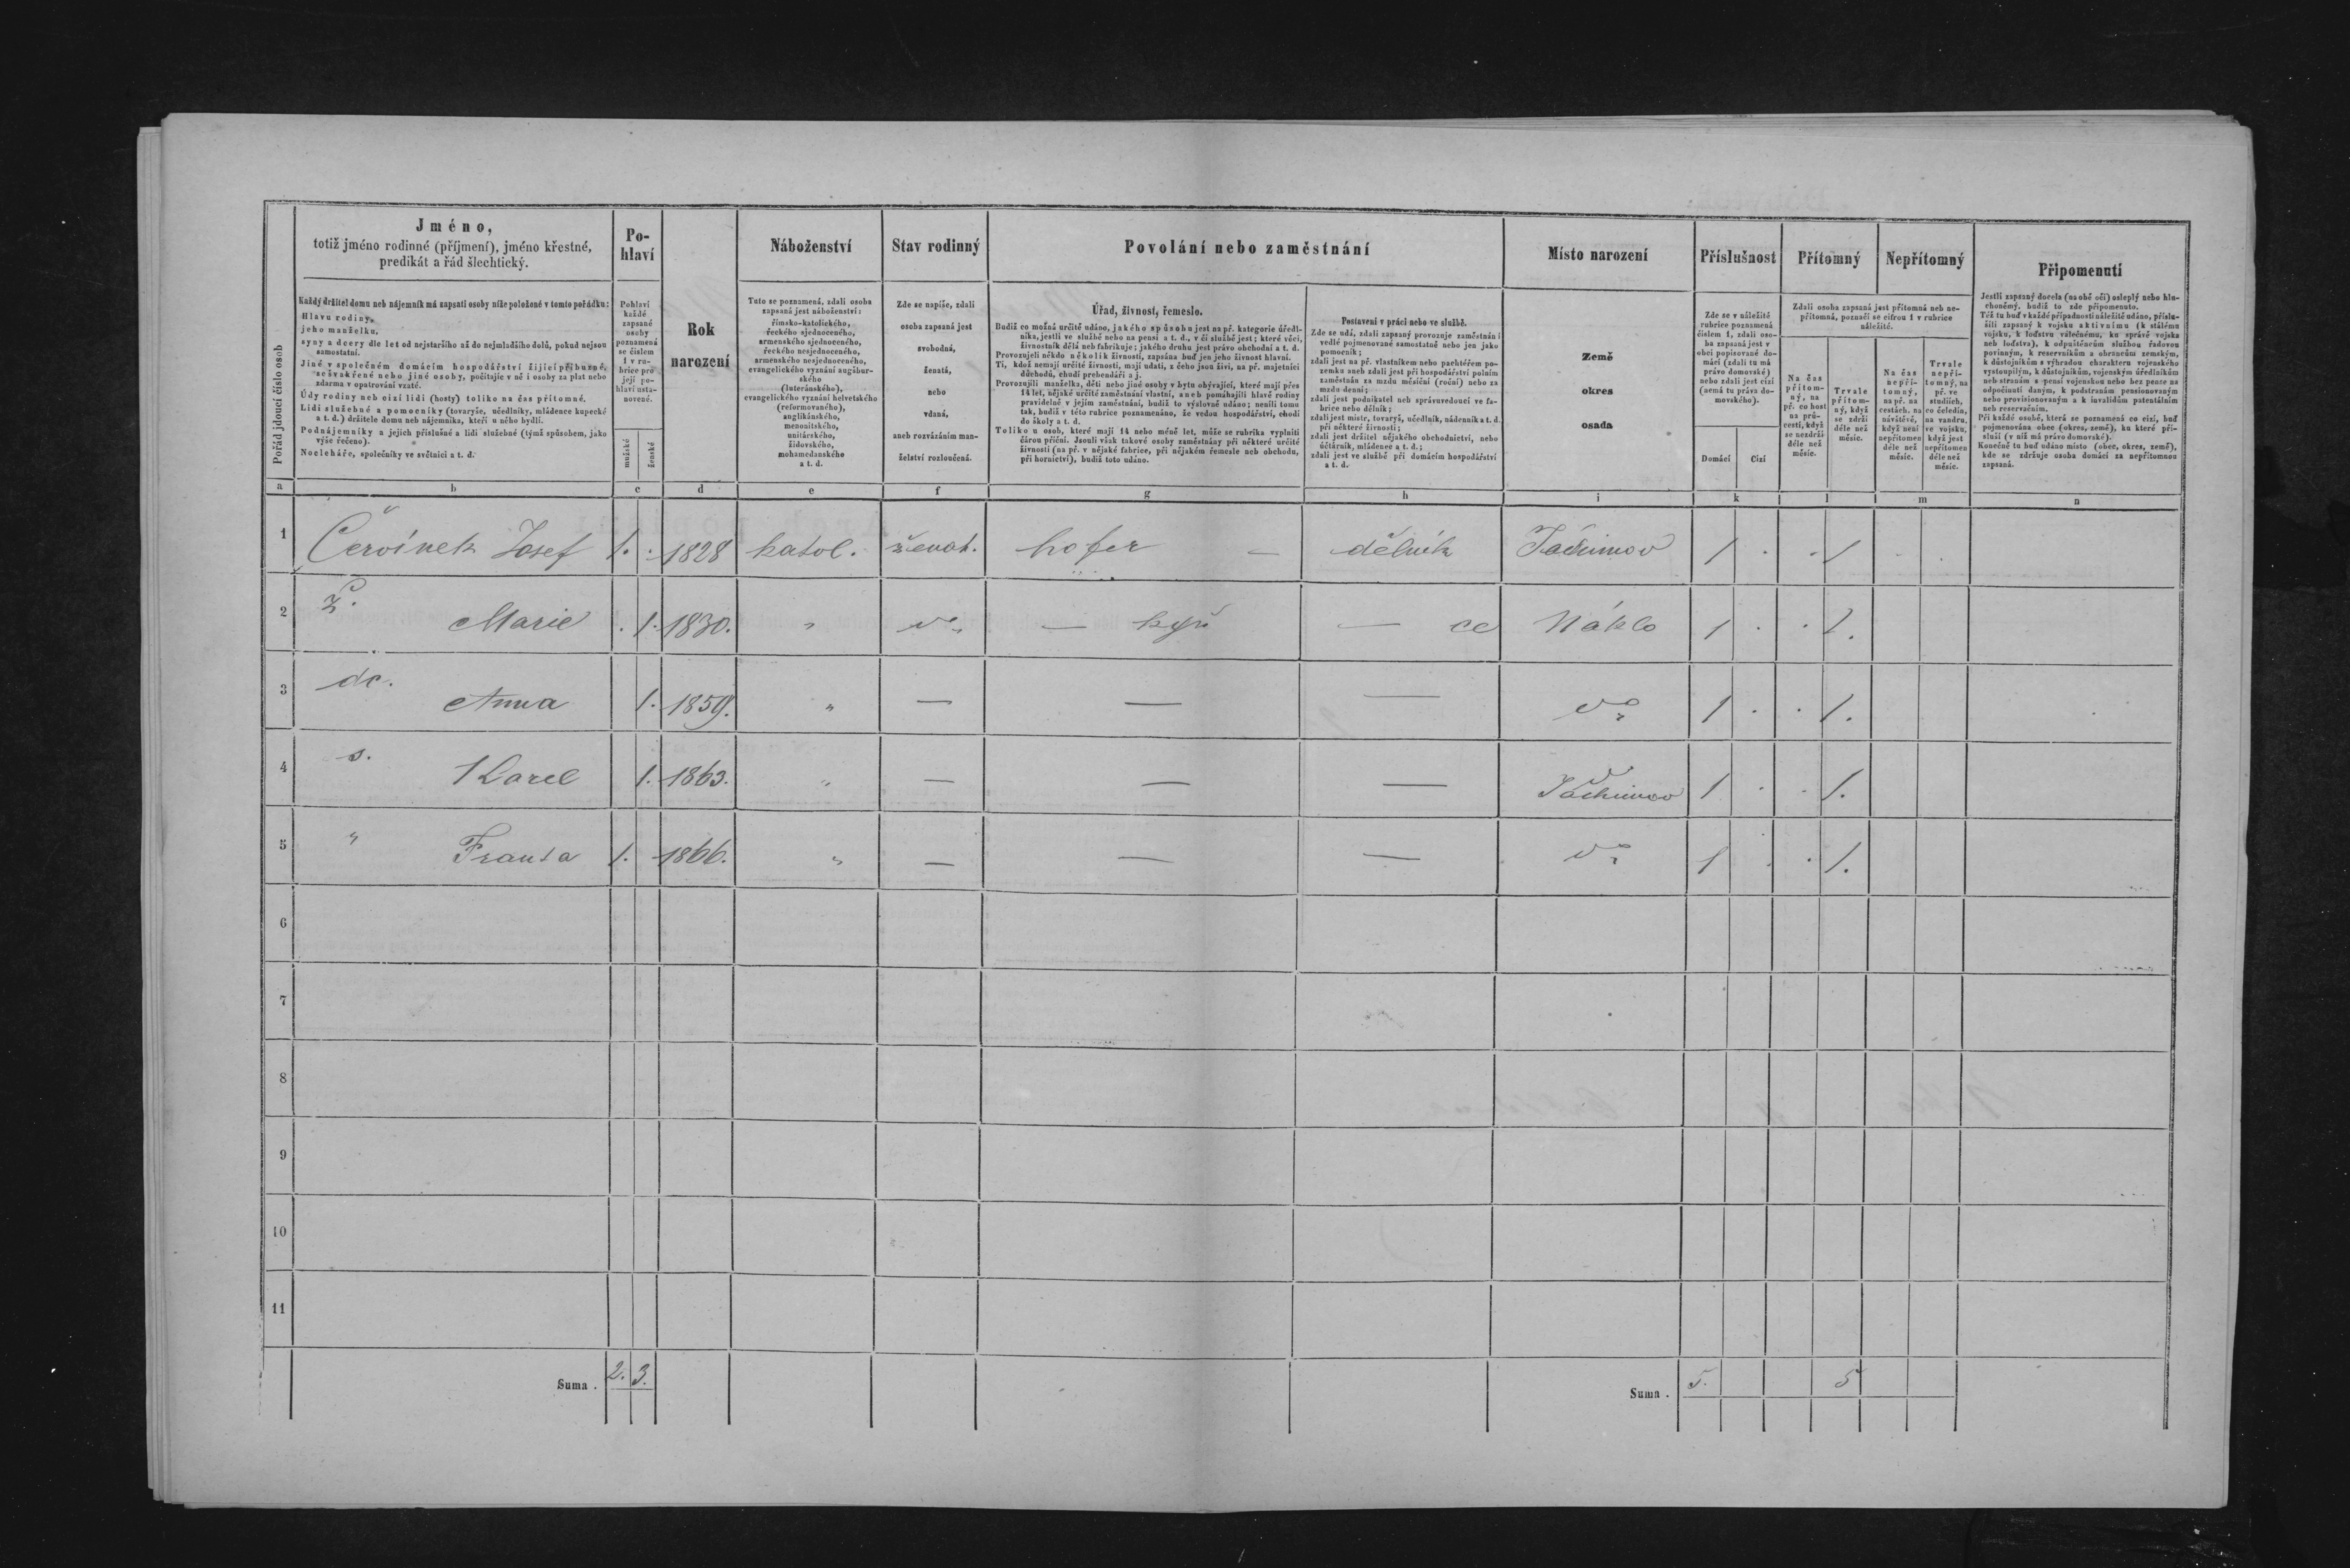 Pořád jdoucí číslo osob
Jméno,
totiž jméno rodinné (příjmení), jméno křestné,
predikát a řád šlechtický.
Každý držitel domu neb nájemník má zapsati osoby níže položené v tomto pořádku:
Hlavu rodiny,
jeho manželku,
syny a dcery dle let od nejstaršího až do nejmladšího dolů, pokud nejsou
samostatní.
Jiné v společném domácím hospodářství žijící příbuzné,
sešvakřené nebo jiné osoby, počítajíc v ně i osoby za plat nebo
zdarma v opatrování vzaté.
Údy rodiny neb cizí lidi (hosty) toliko na čas přítomné.
Lidi služebné a pomocníky (tovaryše, učedlníky, mládence kupecké
a t. d.) držitele domu neb nájemníka, kteří u něho bydlí.
Podnájemníky a jejich příslušné a lidi služebné (týmž spůsobem, jako
výše řečeno).
Nocleháře, společníky ve světnici a t. d.
Po-
hlaví
Pohlaví
každé
zapsané
osoby
poznamená
se číslem
1 v ru-
brice pro
její po-
hlaví usta-
novené.
mužské
ženské
Rok
narození
Náboženství
Tuto se poznamená, zdali osoba
zapsaná jest náboženství:
římsko-katolického,
řeckého sjednoceného,
armenského sjednoceného,
řeckého nesjednoceného,
armenského nesjednoceného,
evangelického vyznání augšbur-
ského
(luteránského),
evangelického vyznání helvetského
(reformovaného),
anglikánského,
menoaitského,
unitárského,
židovského,
mohamedanského
a t. d.
Stav rodinný
Zde se napíše, zdali
osoba zapsaná jest
svobodná,
ženatá,
nebo
vdaná,
aneb rozvázáním man-
želství rozloučená.
Povolání nebo zaměstnání
Úřad, živnost, řemeslo.
Budiž co možná určitě udáno, jakého spůsobu jest na př. kategorie úředl-
níka, jestli ve službě nebo na pensi a t. d., v čí službě jest; které věci,
živnostník dělá neb fabrikuje; jakého druhu jest právo obchodní a t. d.
Provozujeli někdo několik živností, zapsána buď jen jeho živnost hlavní.
Ti, kdož nemají určité živnosti, mají udati, z čeho jsou živi, na př. majetníci
důchodů, chudí prebendáři a j.
Provozujíli manželka, děti nebo jiné osoby v bytu obývající, které mají přes
14 let, nějaké určité zaměstnání vlastní, aneb pomáhajíli hlavě rodiny
pravidelně v jejím zaměstnání, budiž to výslovně udáno; neníli tomu
tak, budiž v této rubrice poznamenáno, že vedou hospodářství, chodí
do školy a t. d.
Toliko u osob, které mají 14 nebo méně let, může se rubrika vyplniti
čárou příční. Jsouli však takové osoby zaměstnány při některé určité
živnosti (na př. v nějaké fabrice, při nějakém řemesle neb obchodu,
při hornictví), budiž toto udáno.
Postavení v práci nebo ve službě.
Zde se udá, zdali zapsaný provozuje zaměstnání
vedlé pojmenované samostatně nebo jen jako
pomocník;
zdali jest na př. vlastníkem nebo pachtéřem po-
zemku aneb zdali jest při hospodářství polním
zaměstnán za mzdu měsíční (roční) nebo za
mzdu denní;
zdali jest podnikatel neb správuvedoucí ve fa-
brice nebo dělník;
zdali jest mistr, tovaryš, učedlník, nádenník a t. d.
při některé živnosti;
zdali jest držitel nějakého obchodnictví, nebo
účtárník, mládenec a t. d.;
zdali jest ve službě při domácím hospodářství
a t. d.
Místo narození
Země
okres
osada
Příslušnost
Zde se v náležité
rubrice poznamená
číslem 1, zdali oso-
ba zapsaná jest v
obci popisované do-
mácí (zdali tu má
právo domovské)
nebo zdali jest cizí
(nemá tu práva do-
movského).
Domácí
Cizí
Přítomný
Nepřítomný
Zdali osoba zapsaná jest přítomná neb ne-
přítomná, poznačí se cifrou 1 v rubrice
náležité.
Na čas
přítom-
ný, na
př. co host
na prů-
cestí, když
se nezdrží
déle než
měsíc.
Trvale
přítom-
ný, když
se zdrží
déle než
měsíc.
Na čas
nepří-
tomný,
na př. na
cestách, na
návštěvě,
když není
nepřítomen
déle než
měsíc.
Trvale
nepří-
tomný, na
př. ve
studiích,
co čeledín,
na vandru,
ve vojsku,
když jest
nepřítomen
déle než
měsíc.
Připomenutí
Jestli zapsaný docela (na obě oči) osleplý nebo hlu-
choněmý, budiž to zde připomenuto.
Též tu buď v každé případnosti náležitě udáno, příslu-
šíli zapsaný k vojsku aktivnímu (k stálému
vojsku, k loďstvu válečnému, ku správě vojska
neb loďstva), k odpuštěncům službou řadovou
povinným, k reservníkům a obrancům zemským,
k důstojníkům s výhradou charakteru vojenského
vystoupilým, k důstojníkům, vojenským úředlníkům
neb stranám s pensí vojenskou nebo bez pense na
odpočinutí daným, k podstranám pensionovaným
nebo provisionovaným a k invalidům patentálním
neb reservačním.
Při každé osobě, která se poznamená co cizí, buď
pojmenována obec (okres, země), ku které pří-
sluší (v níž má právo domovské).
Konečně tu buď udáno místo (obec, okres, země),
kde se zdržuje osoba domácí za nepřítomnou
zapsaná.
a b c d e f g h i k l m n
1 Červinek Josef 1. . 1828 katol. ženat. hofer — dělník Jáchimov 1 . . 1
2 Ž. Marie . 1. 1830. " — — ce Náklo 1 . . 1.
3 dc. Anna 1. 1859. " — — — 1 . . 1.
4 s. Karel 1. 1863. " — — — Jáchimov 1 . . 1.
5 " Franta 1. 1866. " — — — 1 . . 1.
6
7
8
9
10
11
Suma . 2. 3. Suma . 5. 5